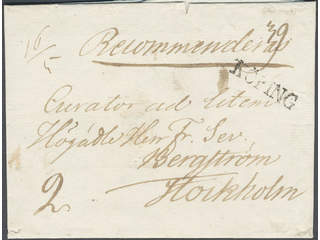 16/5
Recommenderas
39
KÖPING
Curator ad litem
Högädle Herr Fr. Sev.
Bergström
2. Stockholm